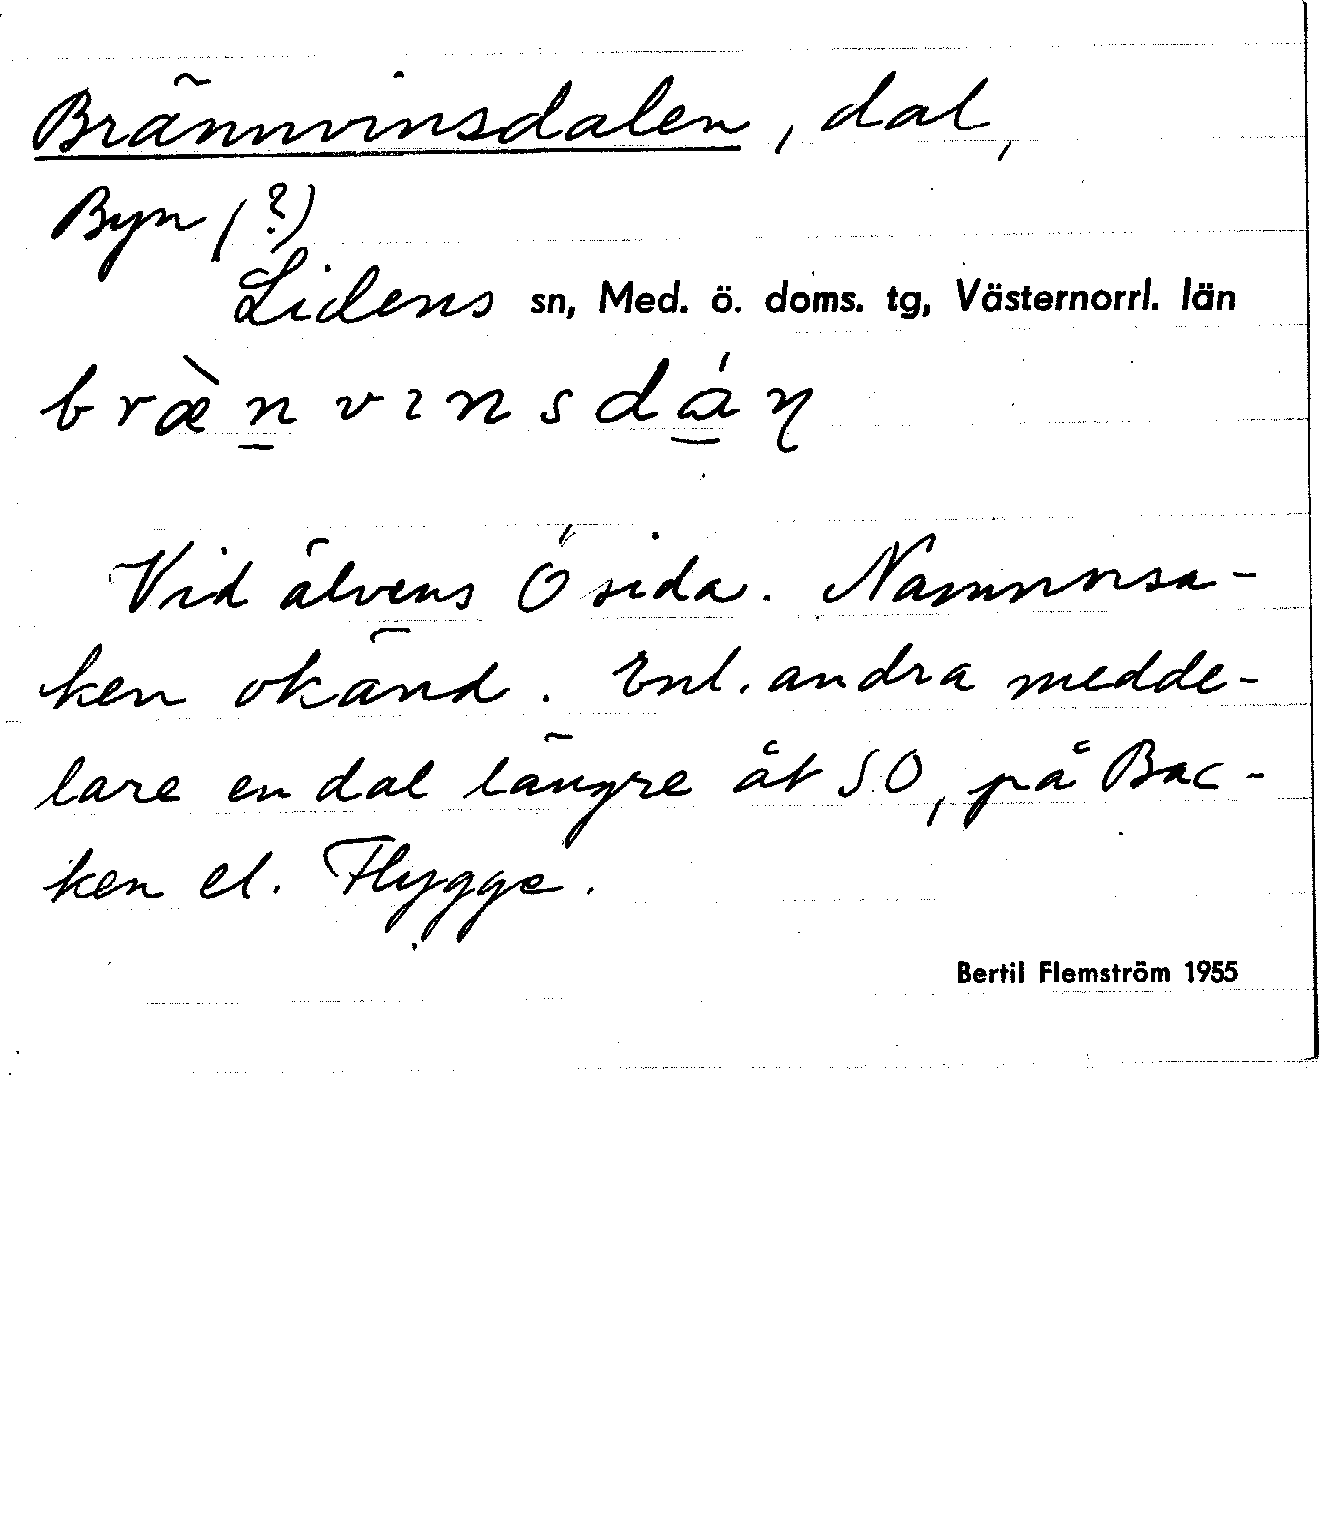 Brännvinsdalen, dal,
Byn (?)
Lidens sn, Med. ö. doms. tg, Västernorrl. län
bræ̀n̲vınsdá̲ɳ
Vid älvens Ö sida. Namnorsa-
ken okänd. Enl. andra medde-
lare en dal längre åt SO, på Bac-
ken el. Flygge.
Bertil Flemström 1955